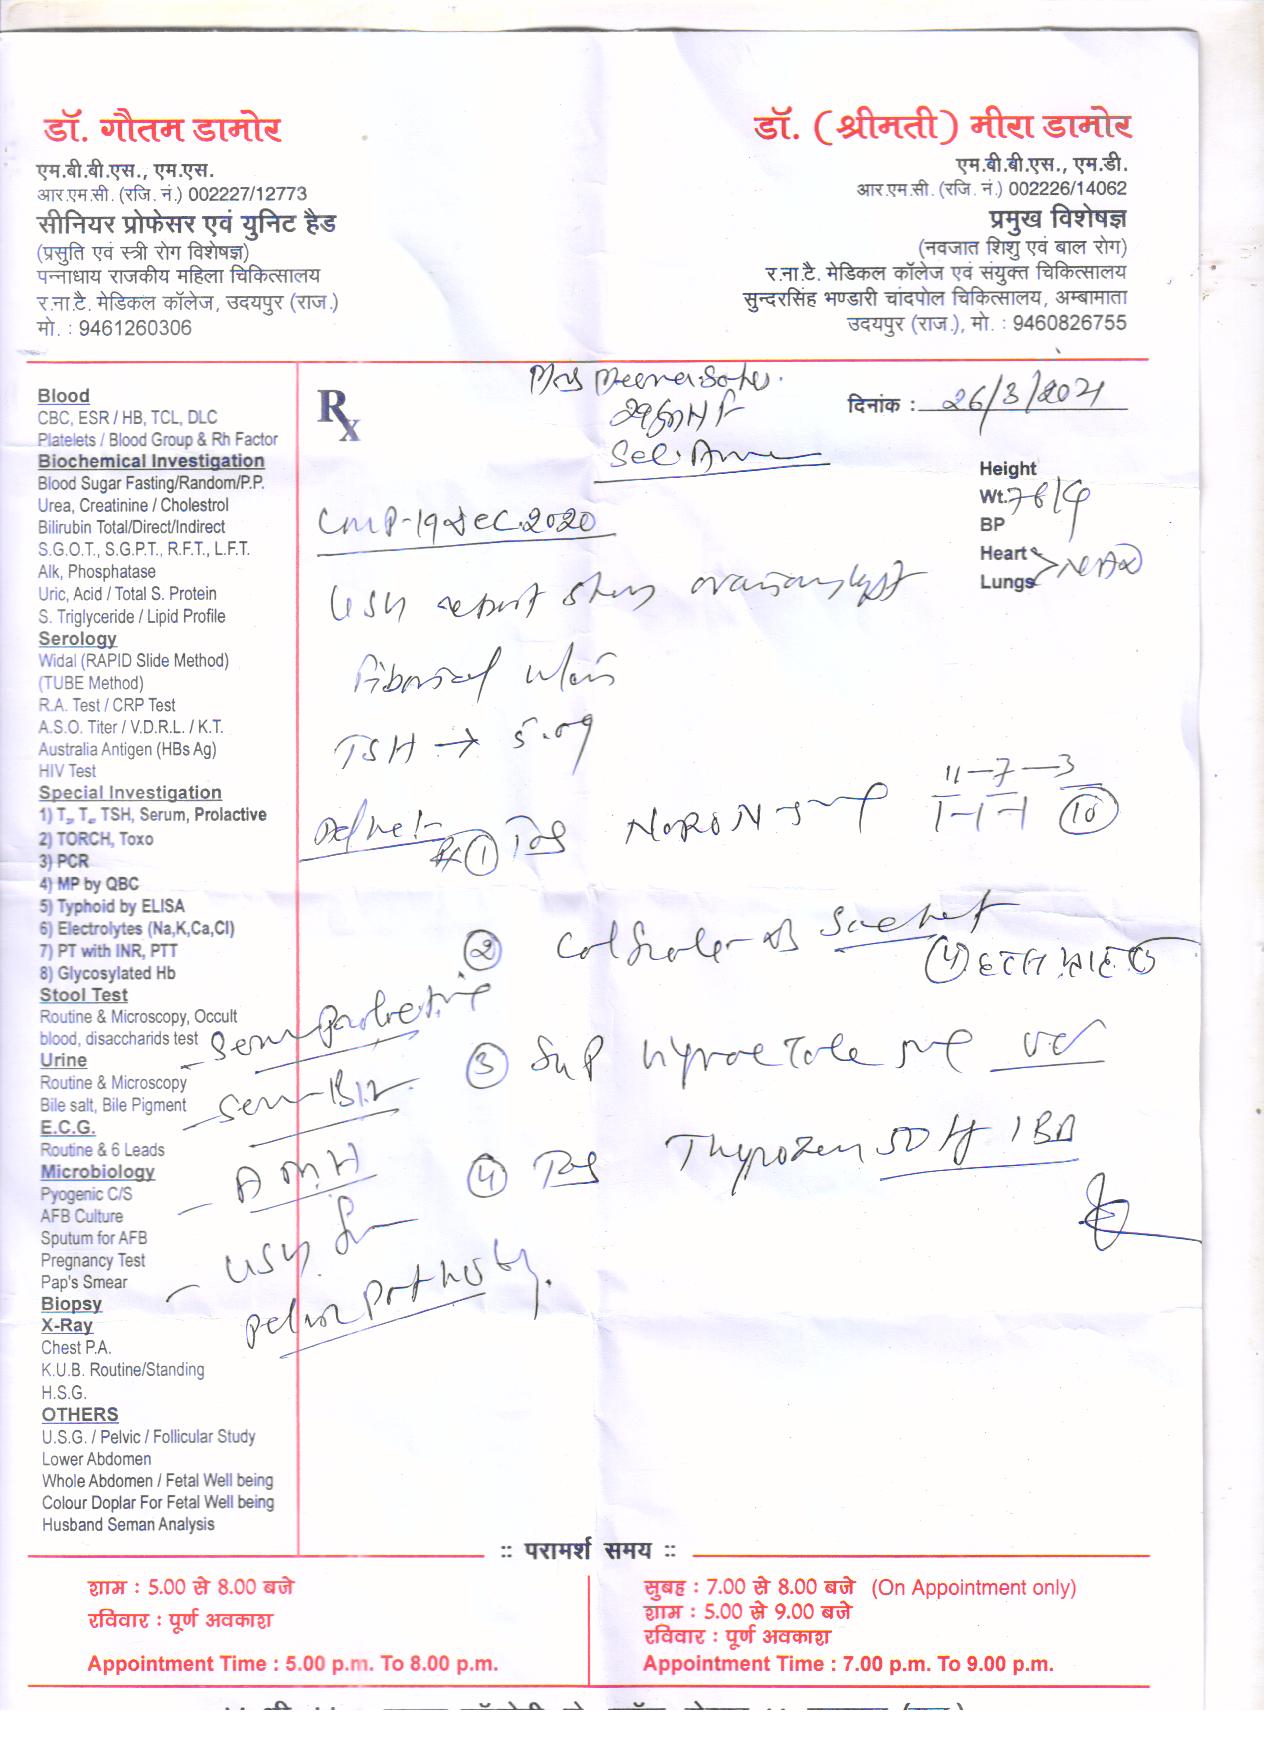 डॉ. गौतम डामोर
एम.बी.बी.एस., एम.एस.
आर.एम.सी. (रजि. नं.) 002227/12773
सीनियर प्रोफेसर एवं युनिट हैड
(प्रसुति एवं स्त्री रोग विशेषज्ञ)
पन्नाधाय राजकीय महिला चिकित्सालय
र.ना.टै. मेडिकल कॉलेज, उदयपुर (राज.)
मो. : 9461260306
डॉ. (श्रीमती) मीरा डामोर
एम.बी.बी.एस., एम.डी.
आर.एम.सी. (रजि. नं.) 002226/14062
प्रमुख विशेषज्ञ
(नवजात शिशु एवं बाल रोग)
र.ना.टै. मेडिकल कॉलेज एवं संयुक्त चिकित्सालय
सुन्दरसिंह भण्डारी चांदपोल चिकित्सालय, अम्बामाता
उदयपुर (राज.), मो. : 9460826755
Blood
CBC, ESR / HB, TCL, DLC
Platelets / Blood Group & Rh Factor
Biochemical Investigation
Blood Sugar Fasting/Random/P.P.
Urea, Creatinine / Cholestrol
Bilirubin Total/Direct/Indirect
S.G.O.T., S.G.P.T., R.F.T., L.F.T.
Alk, Phosphatase
Uric, Acid / Total S. Protein
S. Triglyceride / Lipid Profile
Serology
Widal (RAPID Slide Method)
(TUBE Method)
R.A. Test / CRP Test
A.S.O. Titer / V.D.R.L. / K.T.
Australia Antigen (HBs Ag)
HIV Test
Special Investigation
1) T₃, T₄, TSH, Serum, Prolactive
2) TORCH, Toxo
3) PCR
4) MP by QBC
5) Typhoid by ELISA
6) Electrolytes (Na,K,Ca,Cl)
7) PT with INR, PTT
8) Glycosylated Hb
Stool Test
Routine & Microscopy, Occult
blood, disaccharids test
Urine
Routine & Microscopy
Bile salt, Bile Pigment
E.C.G.
Routine & 6 Leads
Microbiology
Pyogenic C/S
AFB Culture
Sputum for AFB
Pregnancy Test
Pap's Smear
Biopsy
X-Ray
Chest P.A.
K.U.B. Routine/Standing
H.S.G.
OTHERS
U.S.G. / Pelvic / Follicular Study
Lower Abdomen
Whole Abdomen / Fetal Well being
Colour Doplar For Fetal Well being
Husband Seman Analysis
Rx
Mrs Meena
दिनांक : 26/3/2021
Height
Wt. 76
BP
Heart
Lungs NAD
LMP-19 Dec. 2020
USG report
TSH → 5.09
11 – 7 – 3
Rx ① Tab NORON 1-1-1 ⑩
② Sachet
④
③ Syp
④ Tab Thyrozen 50
B12
AMH
USG for
pelvic pathology.
:: परामर्श समय ::
शाम : 5.00 से 8.00 बजे
रविवार : पूर्ण अवकाश
Appointment Time : 5.00 p.m. To 8.00 p.m.
सुबह : 7.00 से 8.00 बजे (On Appointment only)
शाम : 5.00 से 9.00 बजे
रविवार : पूर्ण अवकाश
Appointment Time : 7.00 p.m. To 9.00 p.m.